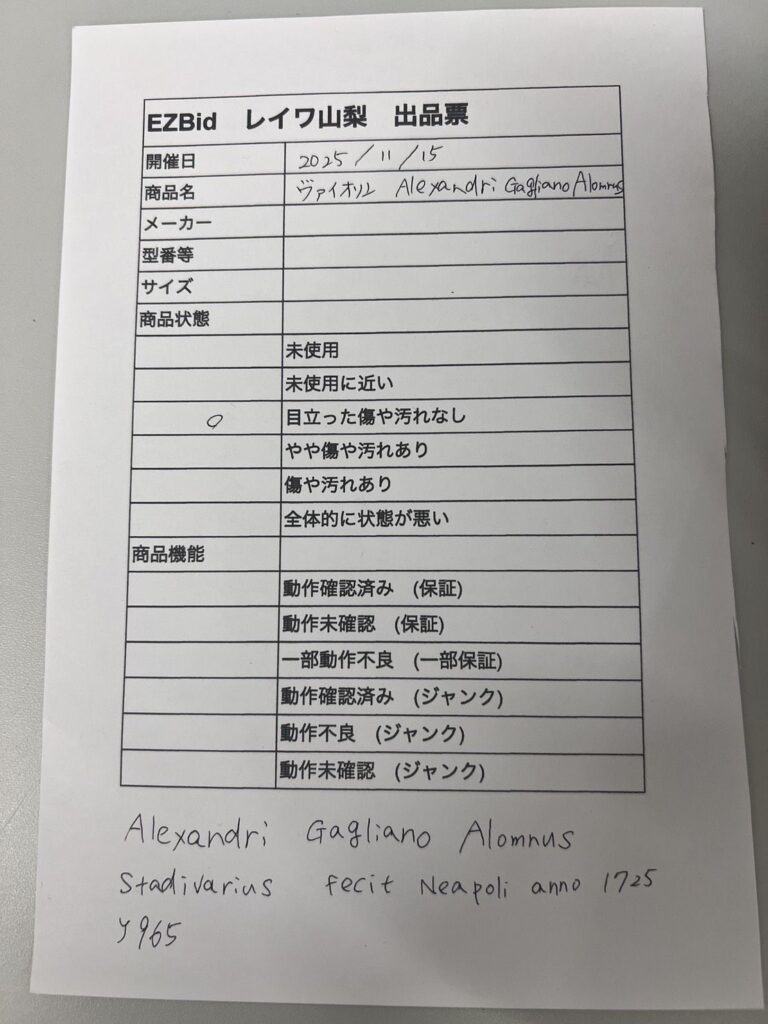 EZBid レイワ山梨 出品票
開催日 2025/11/15
商品名 ヴァイオリン Alexandri Gagliano Alomnus
メーカー
型番等
サイズ
商品状態
未使用
未使用に近い
○ 目立った傷や汚れなし
やや傷や汚れあり
傷や汚れあり
全体的に状態が悪い
商品機能
動作確認済み (保証)
動作未確認 (保証)
一部動作不良 (一部保証)
動作確認済み (ジャンク)
動作不良 (ジャンク)
動作未確認 (ジャンク)
Alexandri Gagliano Alomnus
Stadivarius fecit Neapoli anno 1725
Y965